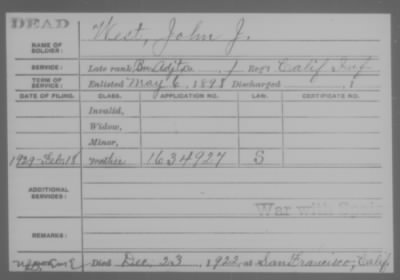 DEAD
NAME OF SOLDIER: West, John J.
SERVICE: Late rank Adjt 1 Reg't Calif Inf
TERM OF SERVICE: Enlisted May 6, 1898 Discharged , 1
DATE OF FILING. CLASS. APPLICATION NO. LAW. CERTIFICATE NO.
Invalid,
Widow,
Minor,
1929-Feb 18 mother 1634927 S
ADDITIONAL SERVICES:
War with Spain
REMARKS:
Died Dec. 23, 1922, at San Francisco, Calif